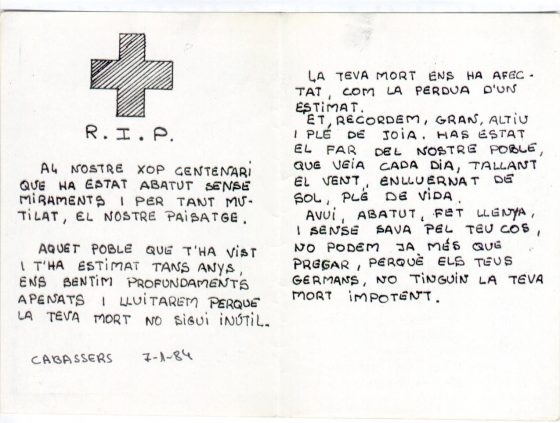 R.I.P.
AL NOSTRE XOP CENTENARI
QUE HA ESTAT ABATUT SENSE
MIRAMENTS I PER TANT MU-
TILAT, EL NOSTRE PAISATGE.
AQUET POBLE QUE T'HA VIST
I T'HA ESTIMAT TANS ANYS,
ENS SENTIM PROFUNDAMENTS
APENATS I LLUITAREM PERQUE
LA TEVA MORT NO SIGUI INÚTIL.
CABASSERS 7-1-84
LA TEVA MORT ENS HA AFEC-
TAT, COM LA PERDUA D'UN
ESTIMAT.
ET, RECORDEM, GRAN, ALTIU
I PLÉ DE JOIA. HAS ESTAT
EL FAR DEL NOSTRE POBLE,
QUE VEIA CADA DIA, TALLANT
EL VENT, ENLLUERNAT DE
SOL, PLÉ DE VIDA.
AVUI, ABATUT, FET LLENYA,
I SENSE SAVA PEL TEU COS,
NO PODEM JA MÉS QUE
PREGAR, PERQUÈ ELS TEUS
GERMANS, NO TINGUIN LA TEVA
MORT IMPOTENT.